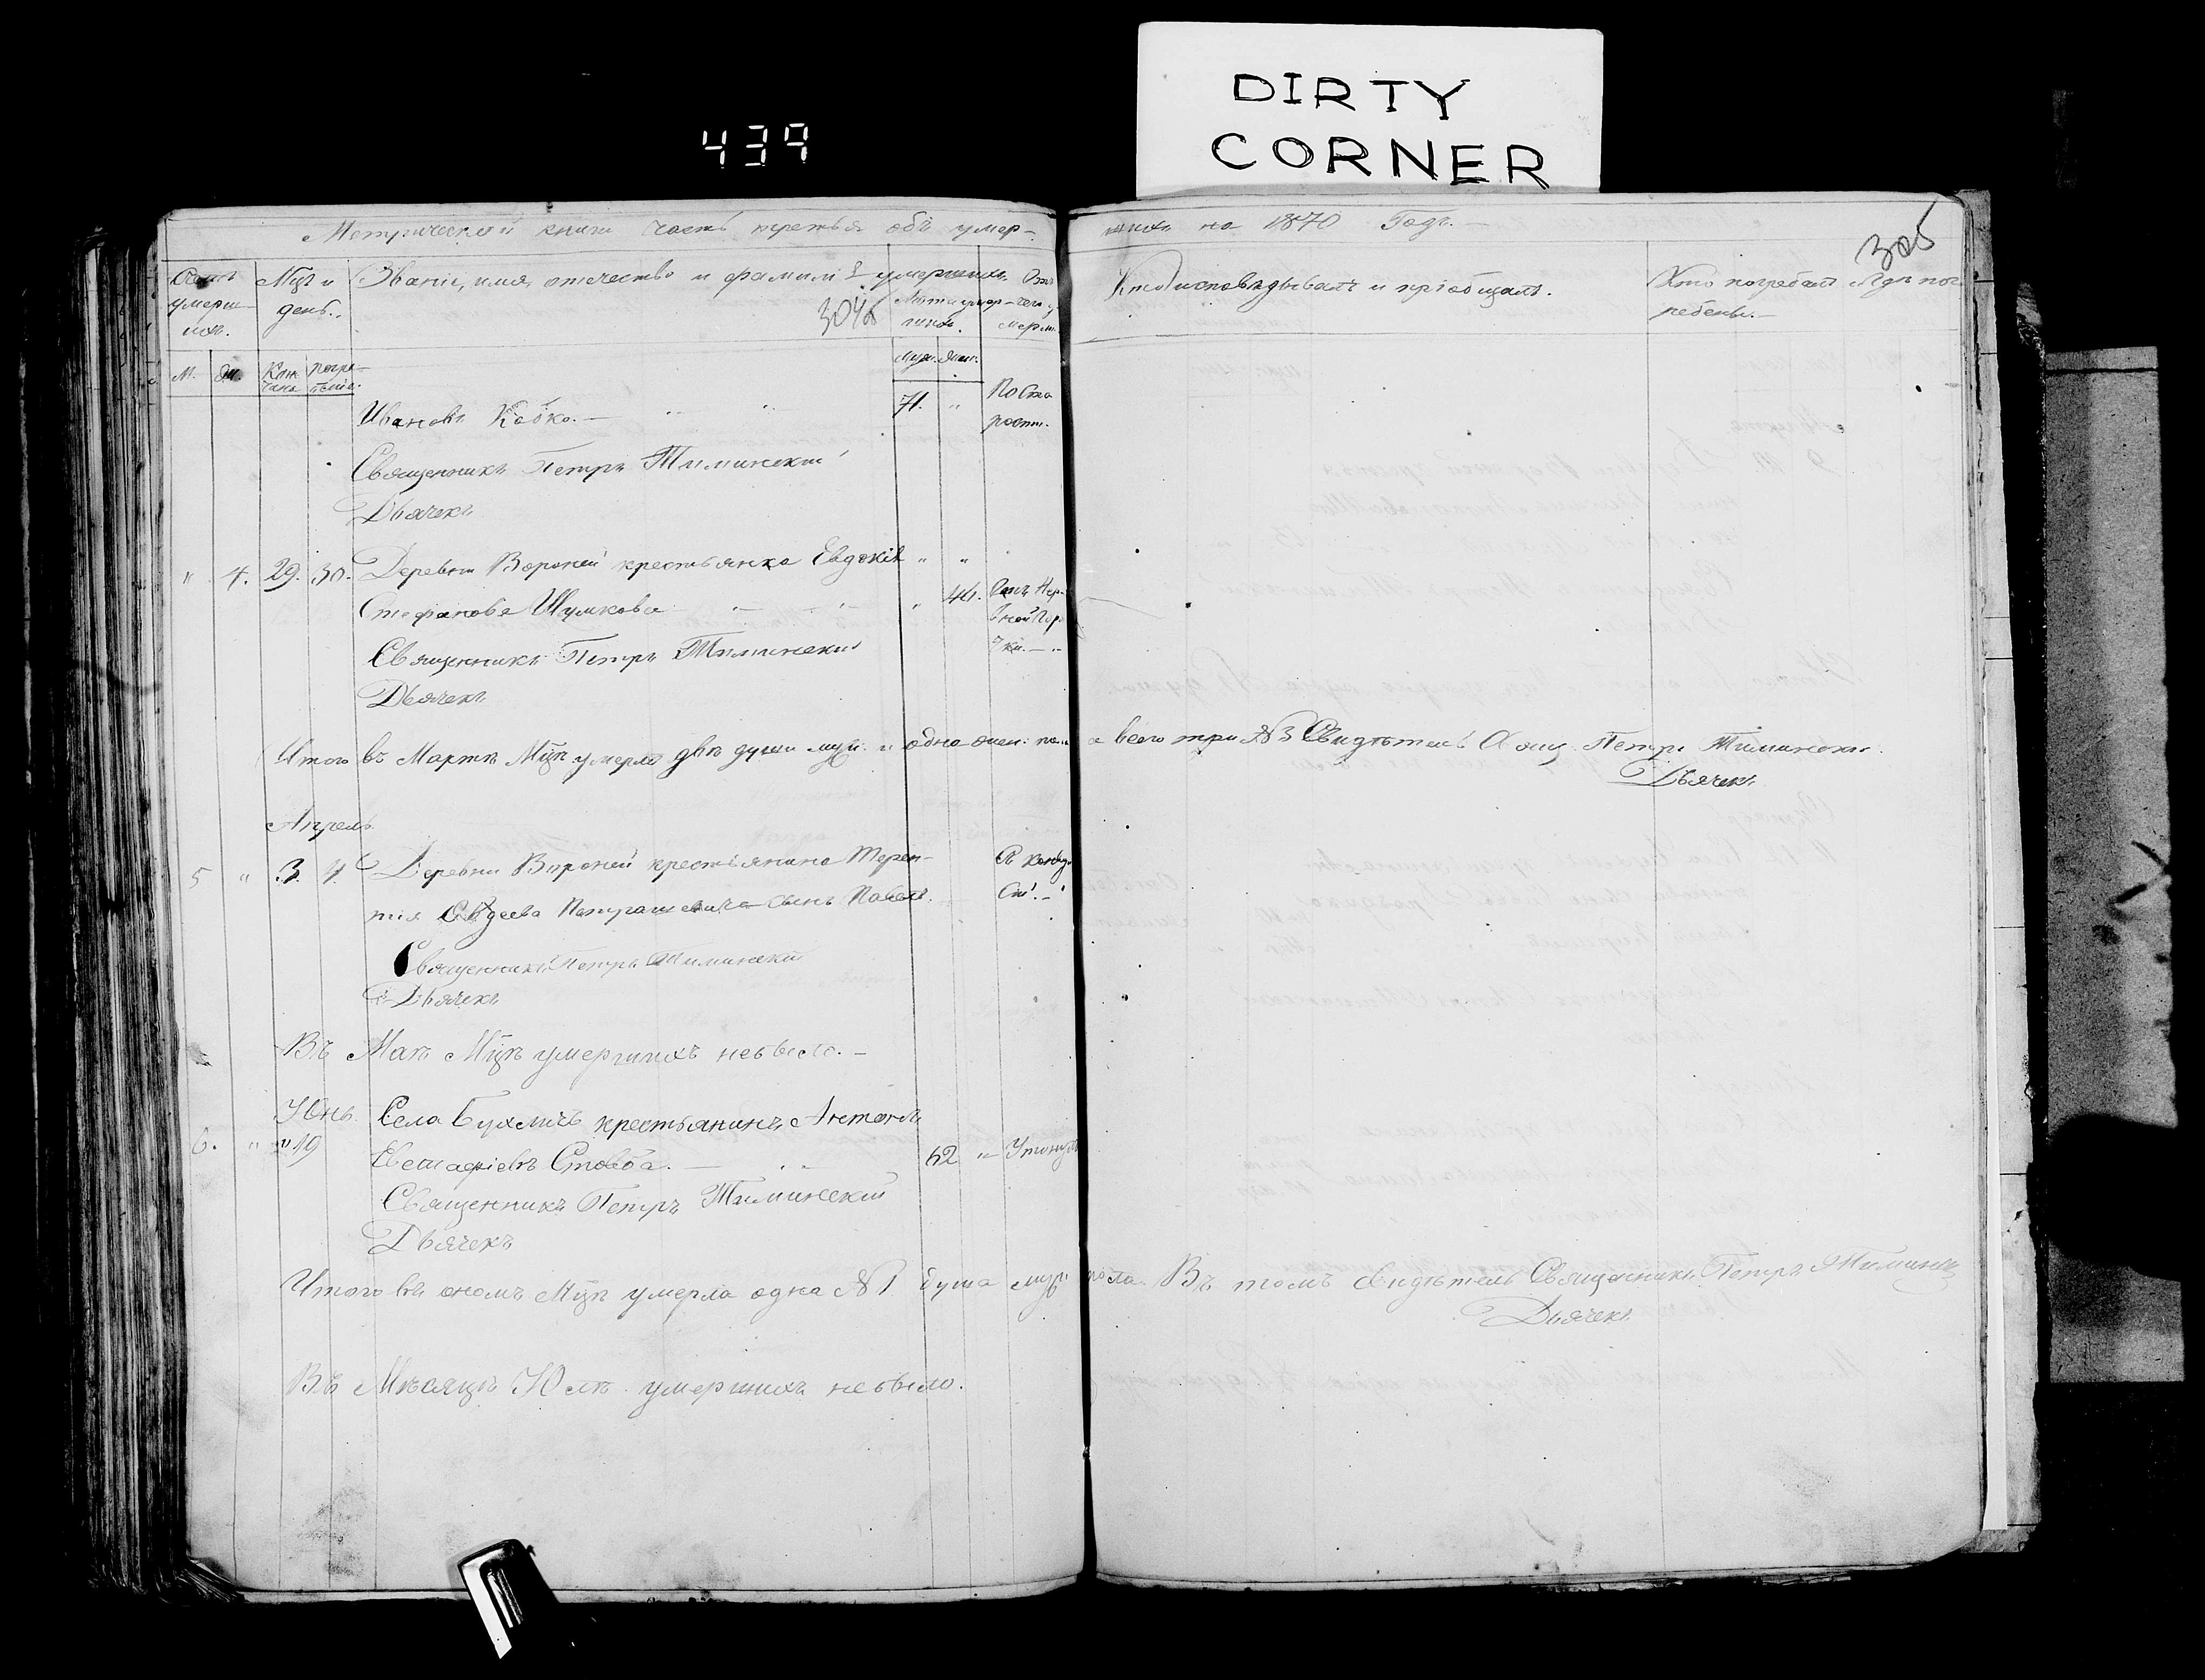 DIRTY
CORNER
439
Метрической книги часть третья объ умер-
шихъ на 1870 Годъ.
305
умерш-
ихъ.
Мцъ и
день.
Званіе, имя, отечество и фамилія умершихъ.
304об
Лѣта умер-
шихъ.
Отъ
чего у
мерли
Кто исповѣдывалъ и пріобщалъ.
Кто погребалъ и гдѣ пог
ребены.
М. Ж.
муж. жен.
Ивановъ Кобко. 71. " По Ста
рост.
Священникъ Петръ Тиминскій
Дьячекъ
" 4. 29. 30. Деревни Вороней крестьянка Евдокія " "
Стефанова Шумкова " 46.
Священникъ Петръ Тиминскій
Дьячекъ
Итого въ Мартѣ Мцѣ умерло двѣ души муж. и одна жен: пола а всего три №3 Свидѣтель Свящ. Петръ Тиминскій.
Дьячекъ
Апрель
5 " 3. 4. Деревни Вороней крестьянина Терен-
тія сынъ Павелъ.
Священникъ Петръ Тиминскій
Дьячекъ
Въ Маѣ Мцѣ умершихъ небыло. —
Юнь. Села Бухличъ крестьянинъ Антонъ
6. " " 19 Евстафіевъ Стовба. 62 " Утонулъ
Священникъ Петръ Тиминскій
Дьячекъ
Итого въ ономъ Мцѣ умерла одна №1 душа муж. пола. Въ томъ Свидѣтель Священникъ Петръ Тиминск
Дьячекъ
Въ Мѣсяцѣ Юлѣ умершихъ небыло.